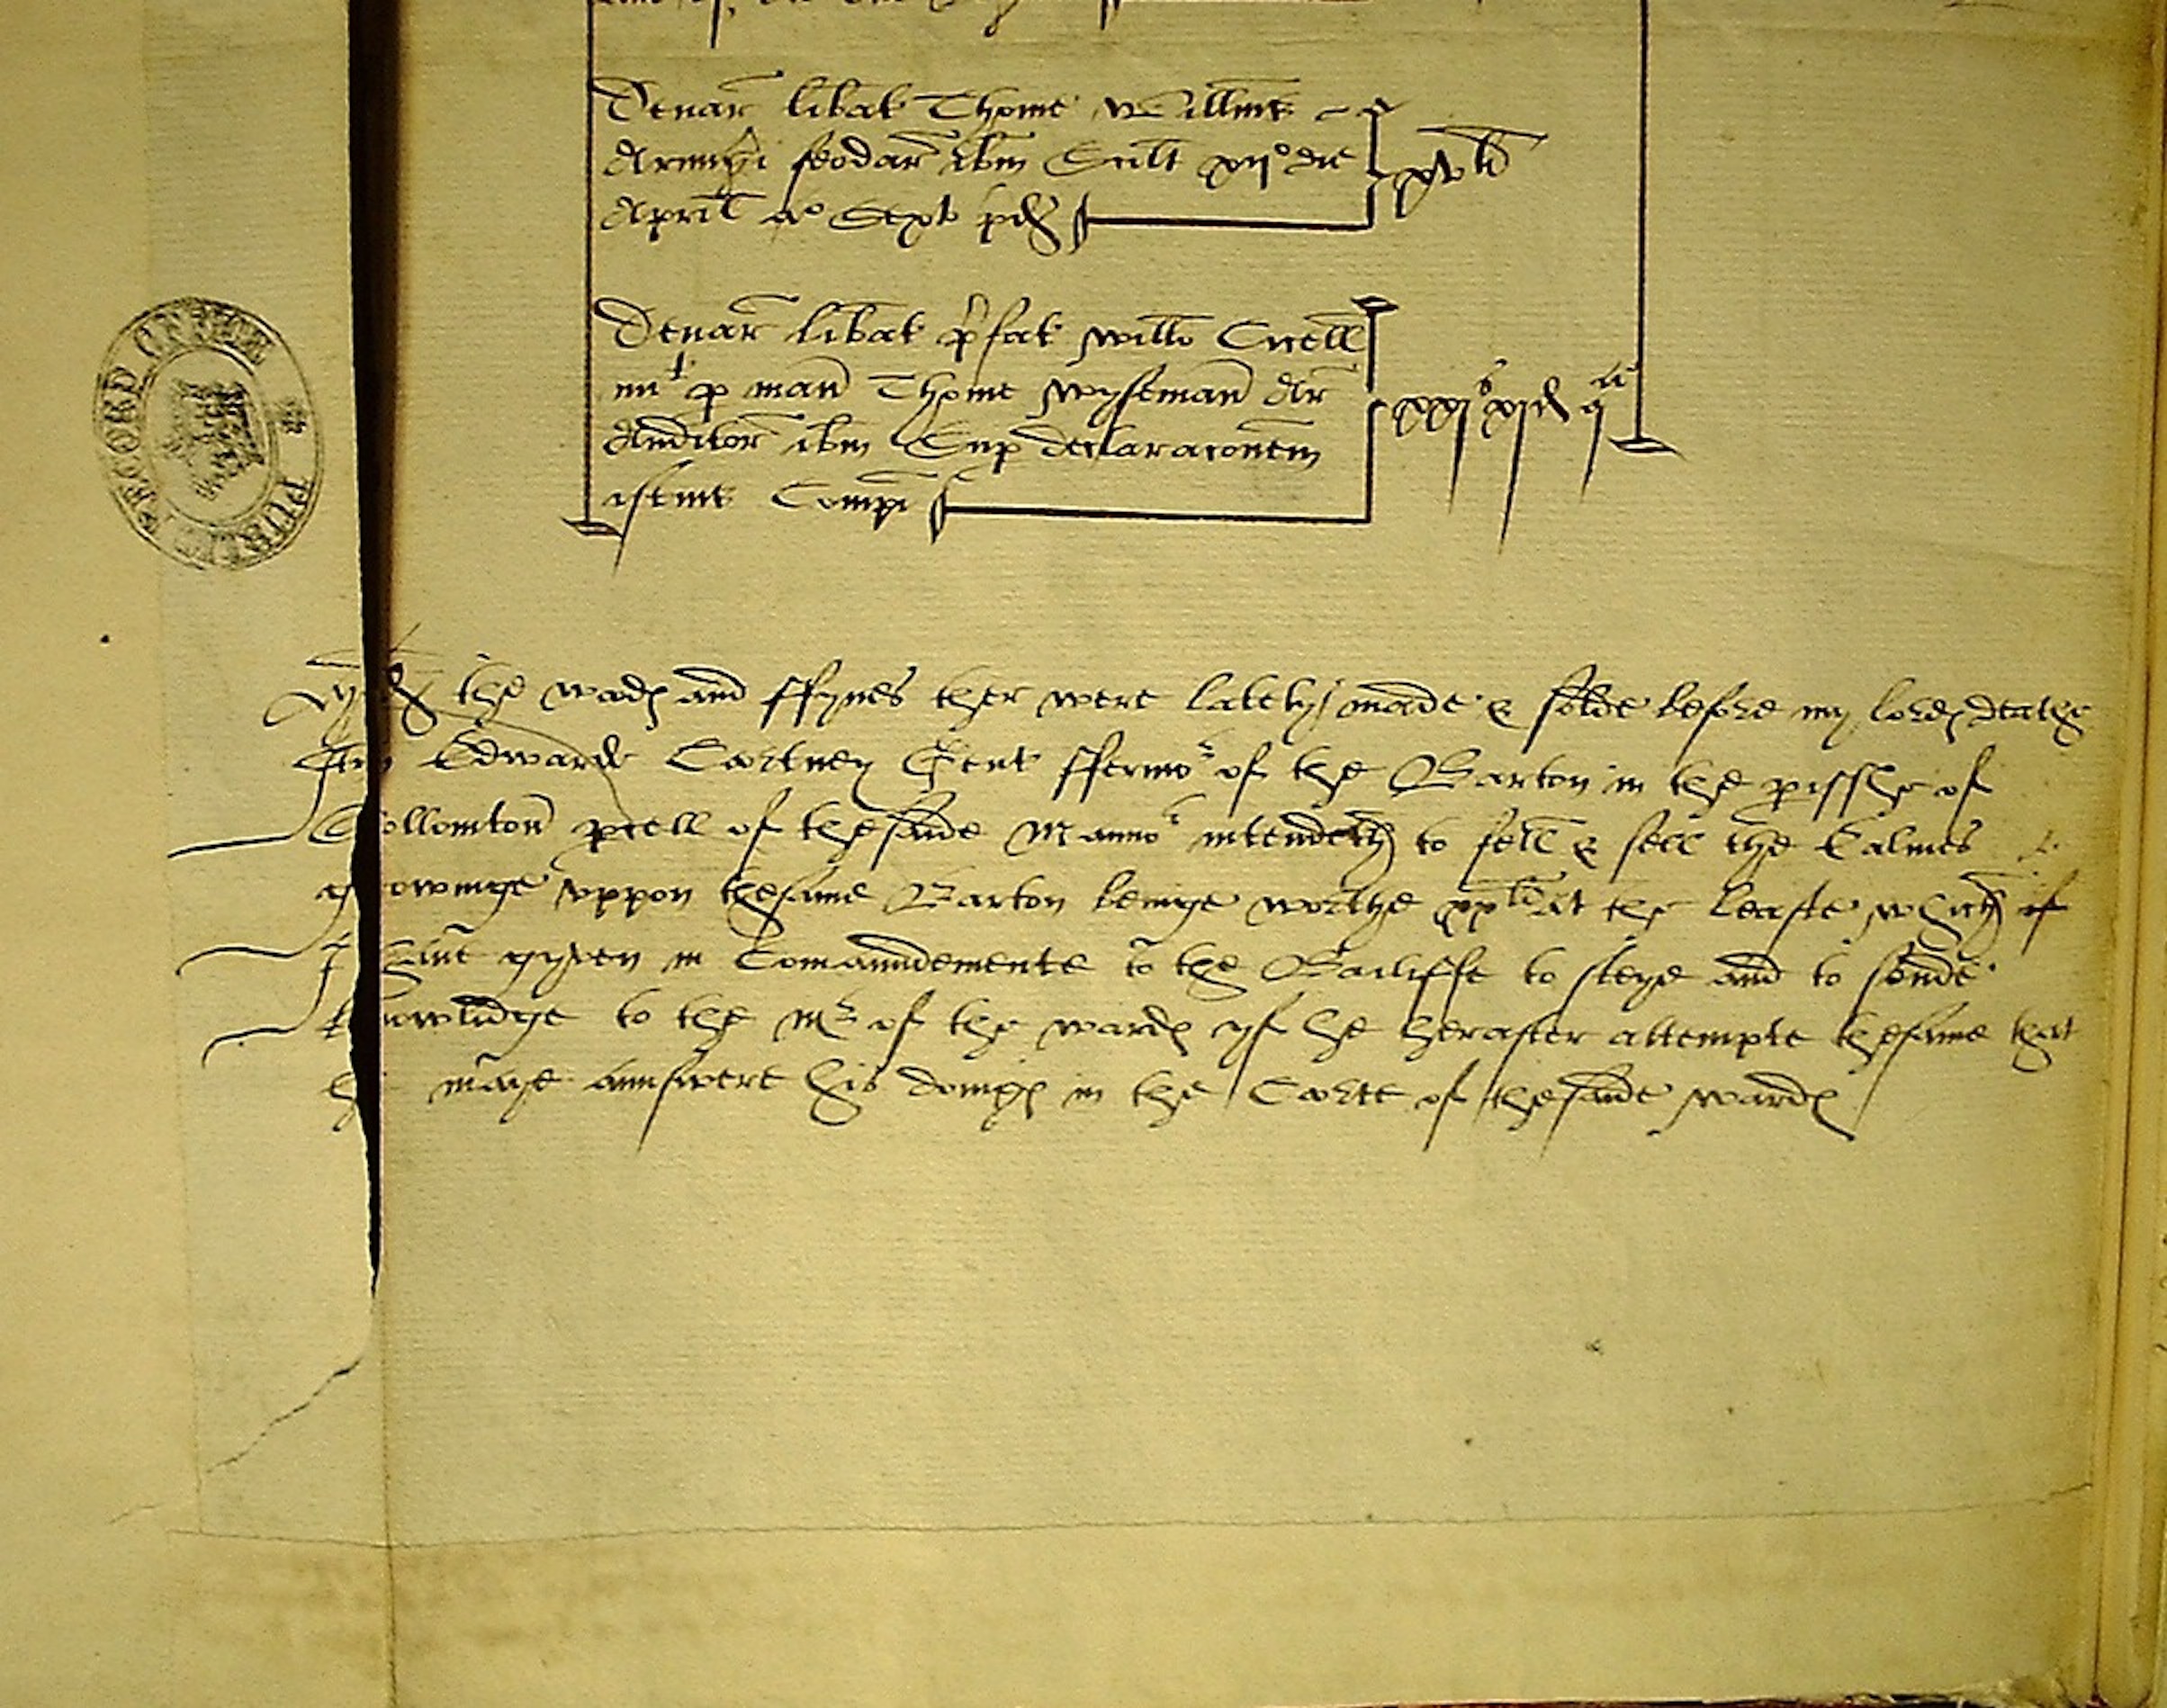 Denar libat Thome Willms
Armigi feodar ibm Scilt xij° die
April a° Sexto pd
xv li
Denar libat p'fat Willo Crell
mit p man Thome Wyseman Ar
Auditor ibm Sup declaraconem
istius Compi
xxjs xjd q
RECORD OFFICE PUBLIC
the wads and ffynes ther were lately made & solde before my lords deathe
Itm Edwarde Cortney Gent ffermor of the Barton in the pisshe of
Collomton pcell of thesaide Mannor intendeth to fell & sell the Ealmes
growinge uppon thesame Barton beinge worthe xxli at the leaste which if
I haue gyven in Comaundemente to the Bailiffe to steye and to sende
knowlidge to the Mr of the wards yf he herafter attempte thesame that
he maye aunswere his doings in the Corte of thesaide wards